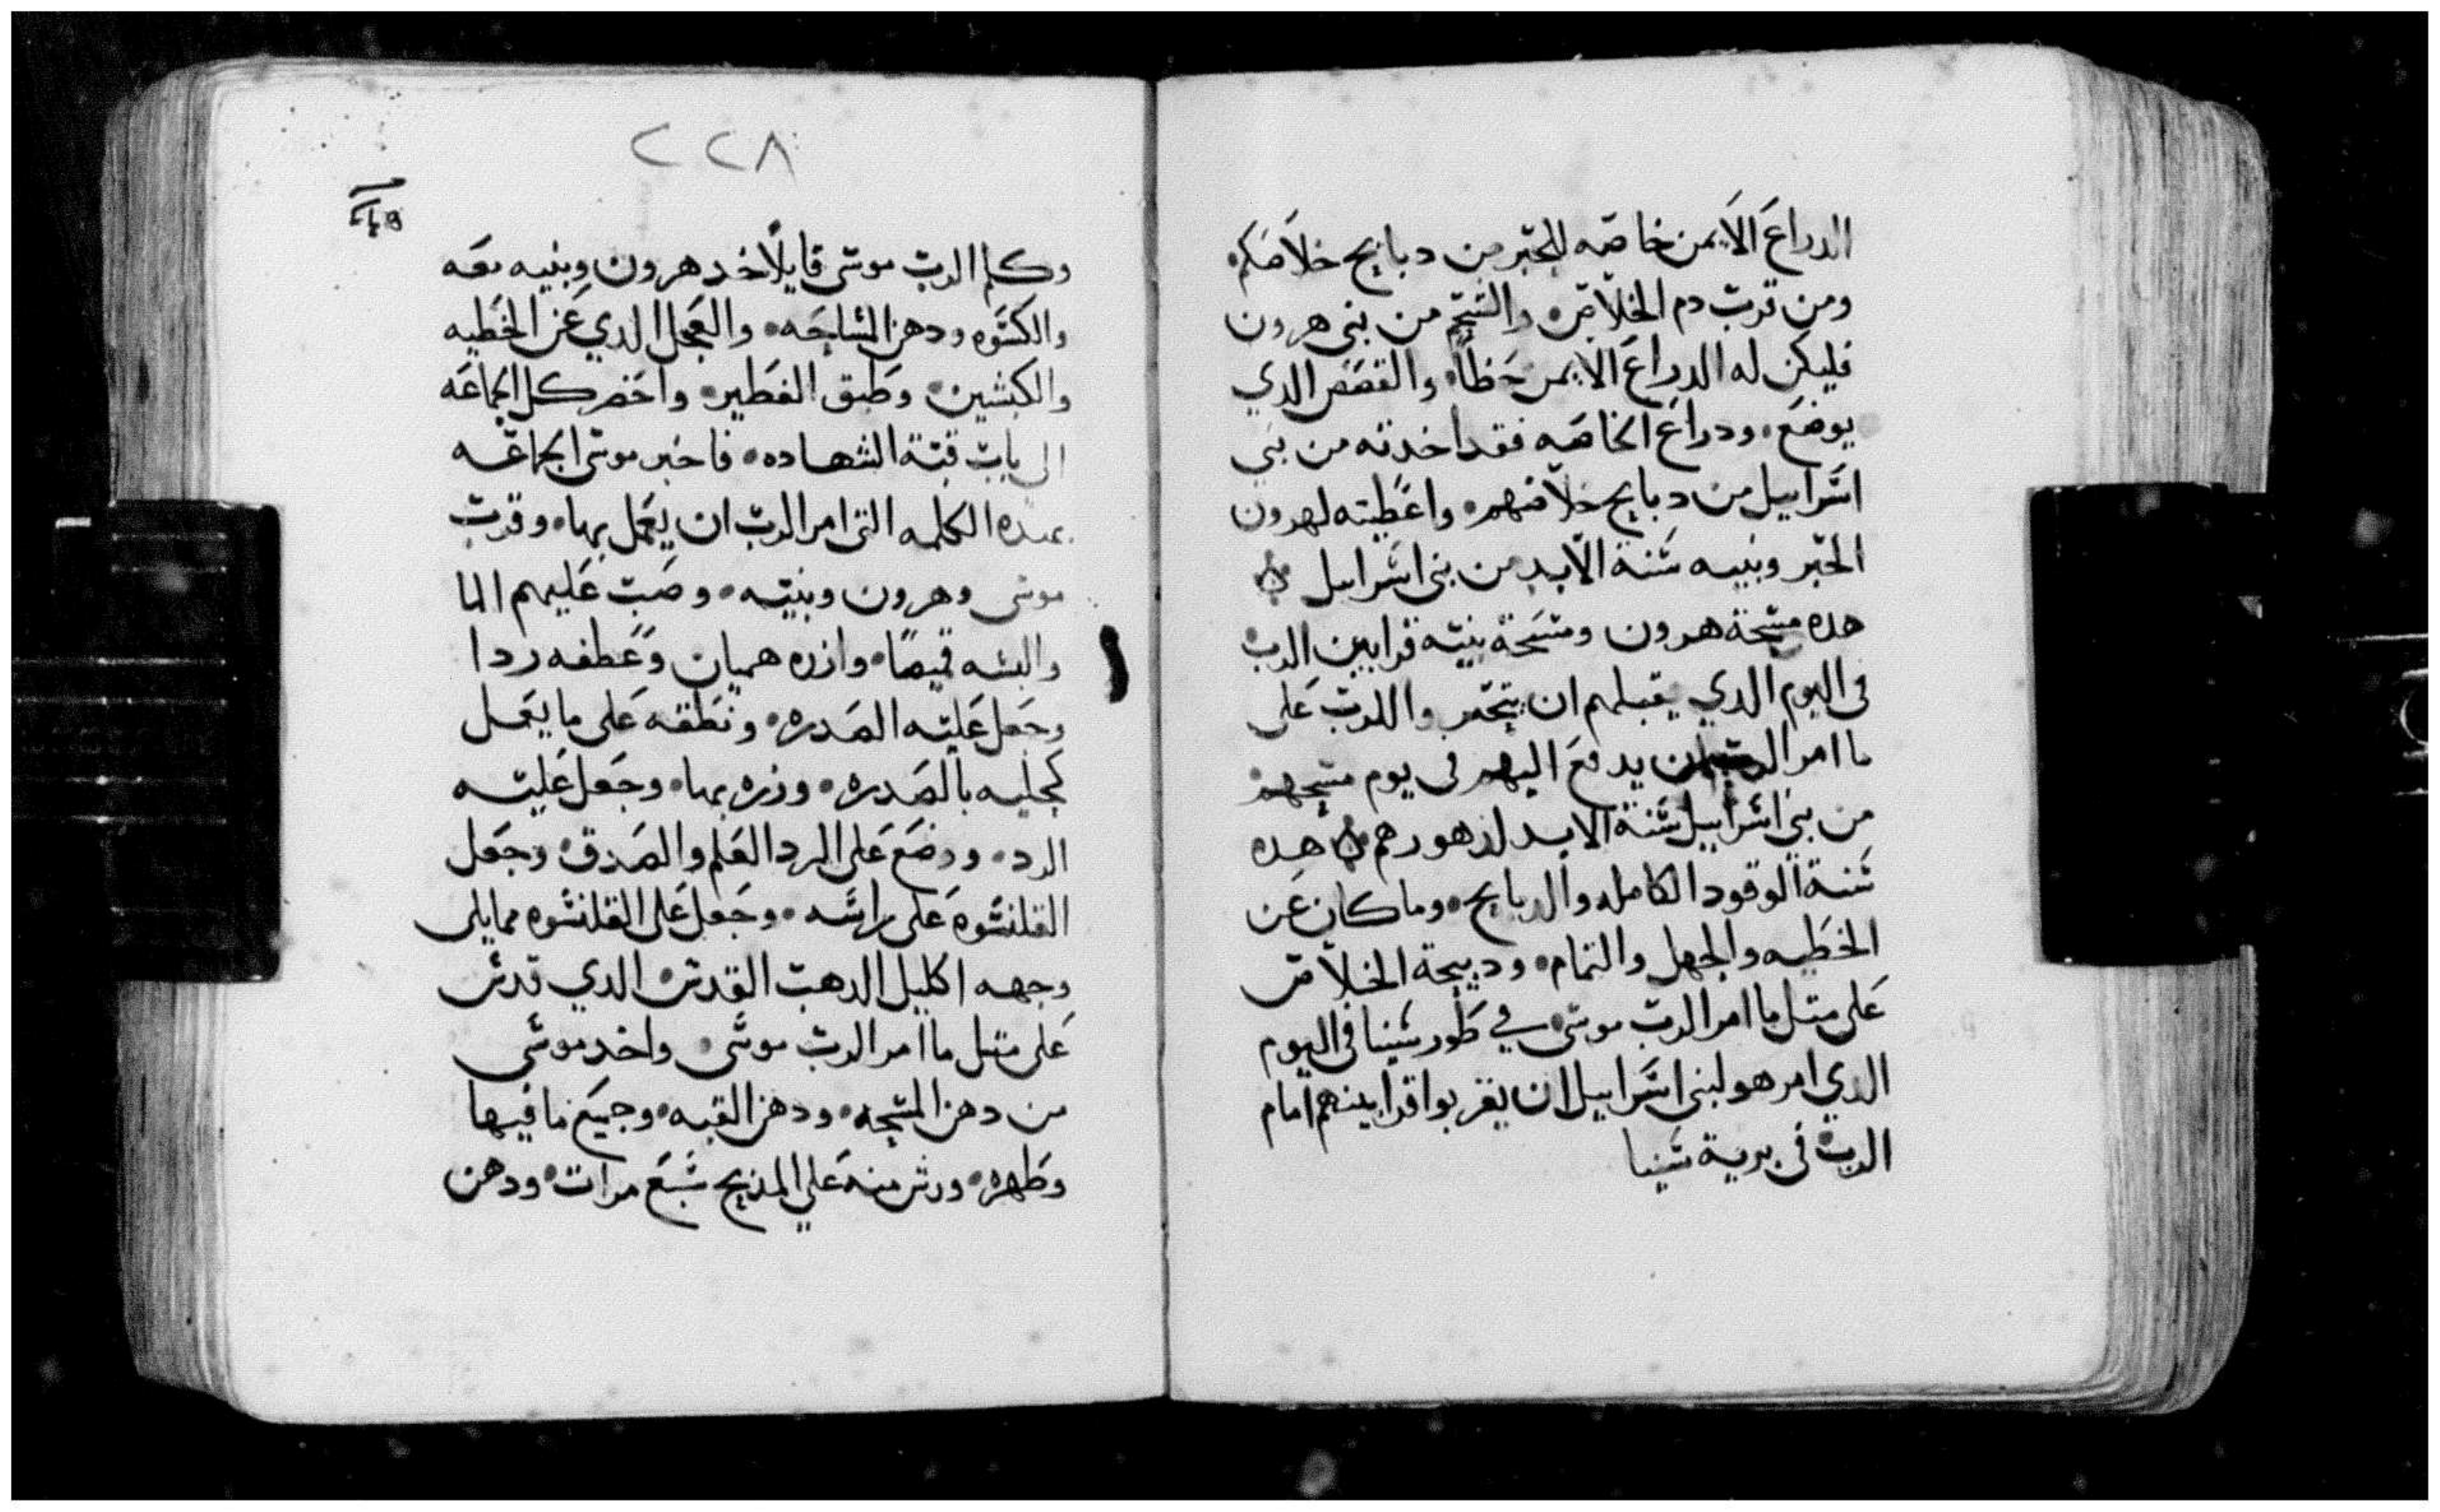 الدراع الايمن خاصه للحبر من دبايح خلاصكم
ومن قرب دم الخلاص والشحم من بني هرون
فليكن له الدراع الايمن حظا والقصص الدي
يوضع ودراع الخاصه فقد اخدته من بني
اسراييل من دبايح خلاصهم واعطيته لهرون
الحبر وبنيه سنة الابد من بني اسراييل
هده مسحة هرون ومسحة بنيه قرابين الرب
في اليوم الدي يقبلهم ان للرب على
ما امر الرب ان يدفع اليهم في يوم مسحهم
من بني اسراييل سنة الابد لدهورهم هده
سنة الوقود الكامله والدبايح وما كان عن
الخطيه والجهل والتمام ودبيحة الخلاص
على متل ما امر الرب موسى في طور سينا في اليوم
الدي امر هو لبني اسراييل ان يقربوا قرابينهم امام
الرب في برية سينا
٢٢٨
وكلم الرب موسى قايلا خد هرون وبنيه معه
والكسوه ودهن المساحه والعجل الدي عن الخطيه
والكبشين وطبق الفطير واحضر كل الجماعه
الى باب قبة الشهاده فاخبر موسى الجماعه
بهده الكلمه التي امر الرب ان يعمل بها وقرب
موسى وهرون وبنيه وصب عليهم الما
والبسه قميصا وازره هميان وعطفه ردا
وجعل عليه الصدره ونطقه على ما يعمل
كحليه بالصدره وزره بها وجعل عليه
الرد ووضع على الرد العلم والصدق وجعل
القلنسوه على راسه وجعل على القلنسوه مما يلى
وجهه اكليل الدهب القدس الدي قدس
على متل ما امر الرب موسى واخد موسى
من دهن المسحه ودهن القبه وجميع ما فيها
وطهره ورش منه علي المذبح سبع مرات ودهن